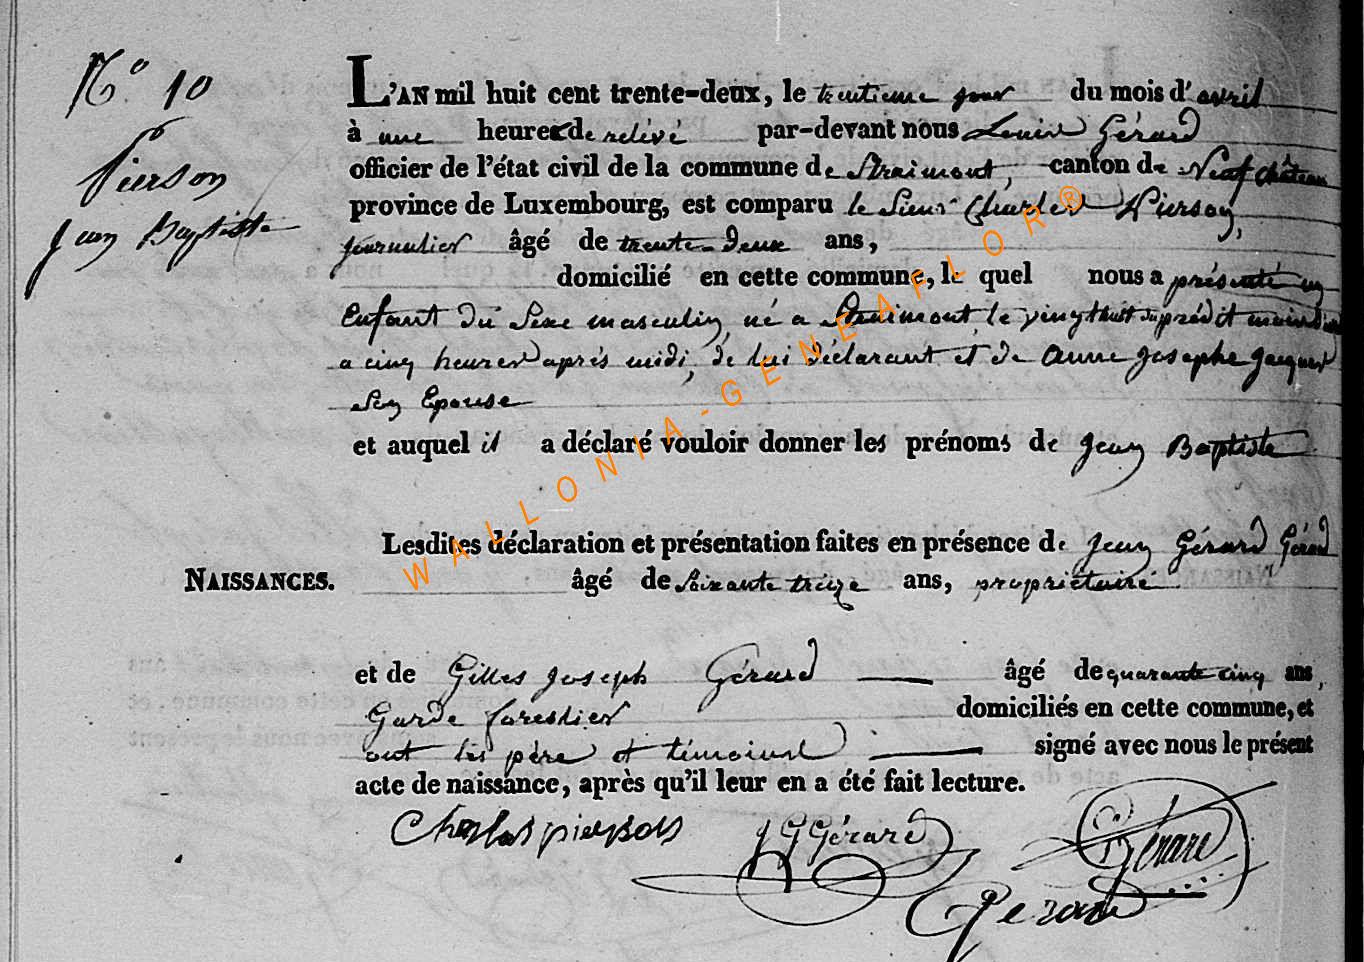 N.° 10
Pierson
Jean Baptiste
L'AN mil huit cent trente-deux, le trentieme jour du mois d'avril
à une heure de relevé par-devant nous Louis Gérard
officier de l'état civil de la commune de Straimont, canton de Neufchâteau
province de Luxembourg, est comparu le Sieur Charles Pierson,
journalier âgé de trente-deux ans,
domicilié en cette commune, le quel nous a présenté un
Enfant du Sexe masculin, né a Straimont, le vingt huit du prédit mois
a cinq heures après midi, de lui déclarant et de Anne Josephe Jacques
son Epouse
et auquel il a déclaré vouloir donner les prénoms de Jean Baptiste
Lesdites déclaration et présentation faites en présence de Jean Gérard Gérard
NAISSANCES. âgé de Soixante treize ans, propriétaire
et de Gilles Joseph Gérard âgé de quarante cinq ans,
Garde forestier domiciliés en cette commune, et
ont les père et témoins signé avec nous le présent
acte de naissance, après qu'il leur en a été fait lecture.
Charlas pierson J G Gérard Gérard
Gerard
WALLONIA-GENEAFLOR®